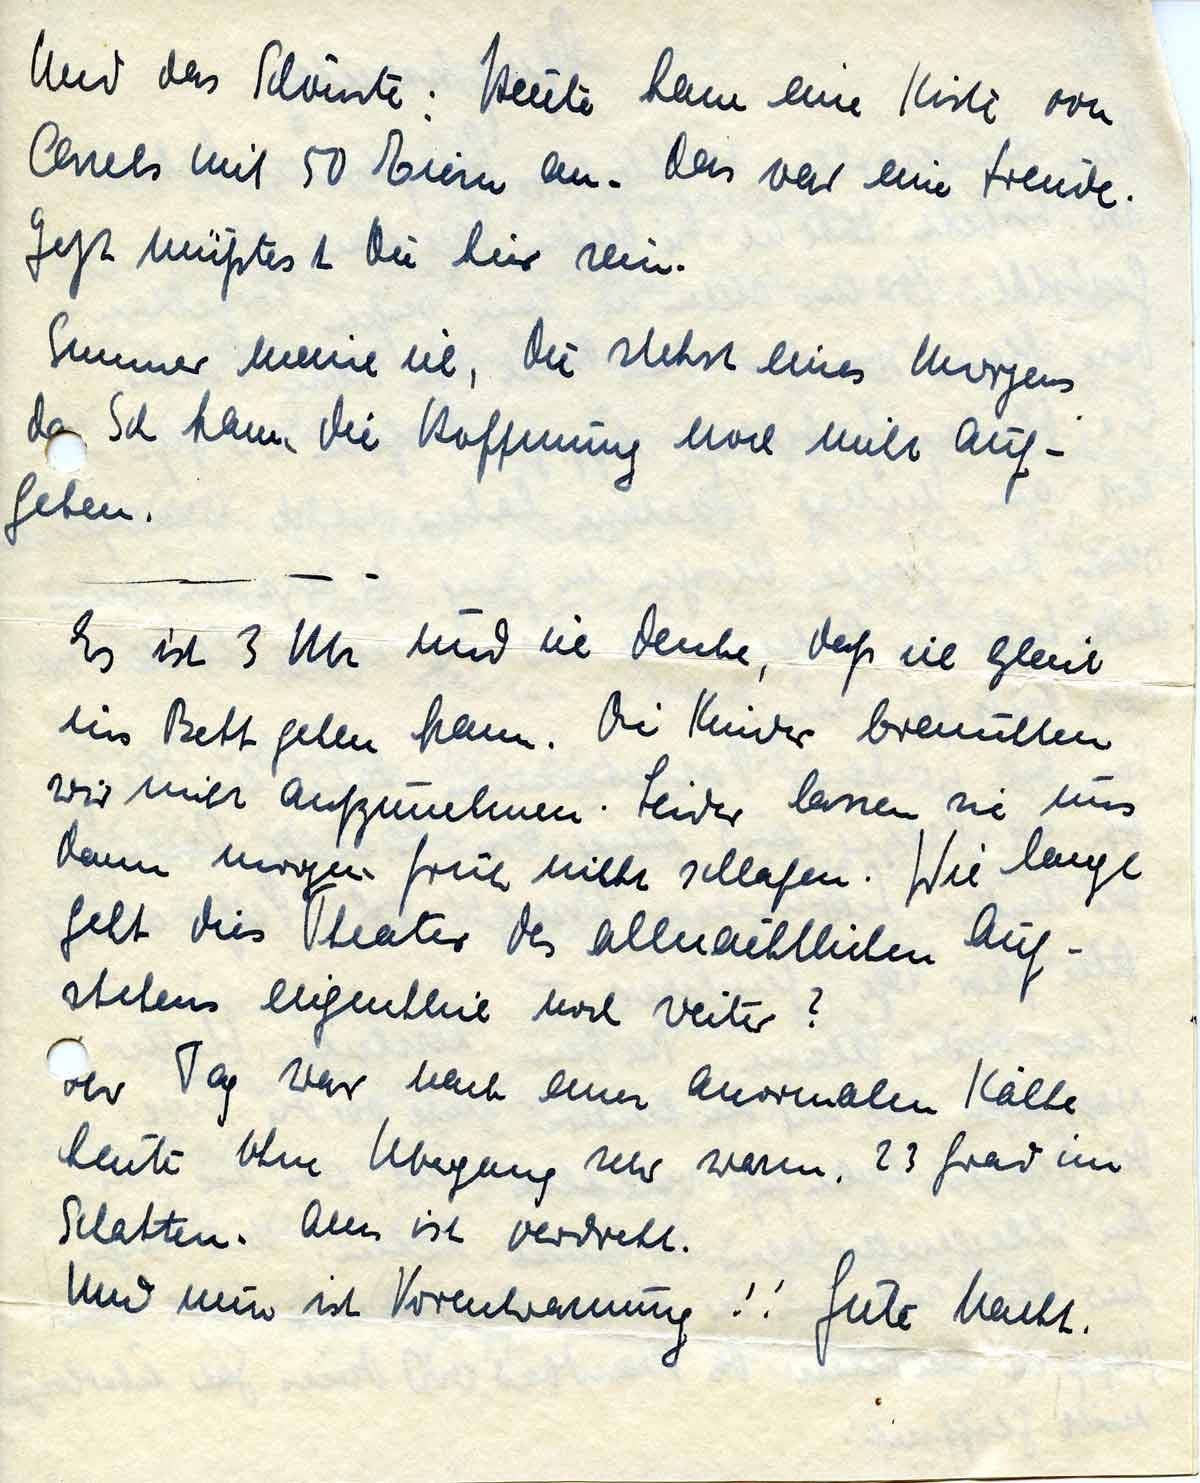 Und das Schönste: Heute kam eine Kiste von
Cassels mit 50 Eiern an. Das war eine Freude.
Jetzt müßtest Du hier sein.
Immer meine ich, Du stehst eines Morgens
da. Ich kann die Hoffnung noch nicht auf-
geben.
Es ist 3 Uhr und ich denke, daß ich gleich
ins Bett gehen kann. Die Kinder brauchten
wir nicht aufzunehmen. Leider lassen sie uns
dann morgen früh nicht schlafen. Wie lange
geht dies Theater des allnächtlichen Auf-
stehens eigentlich noch weiter?
Der Tag war nach einer anormalen Kälte
heute ohne Übergang sehr warm. 23 Grad im
Schatten. Alles ist verdreht.
Und nun ist Vorentwarnung!! Gute Nacht.